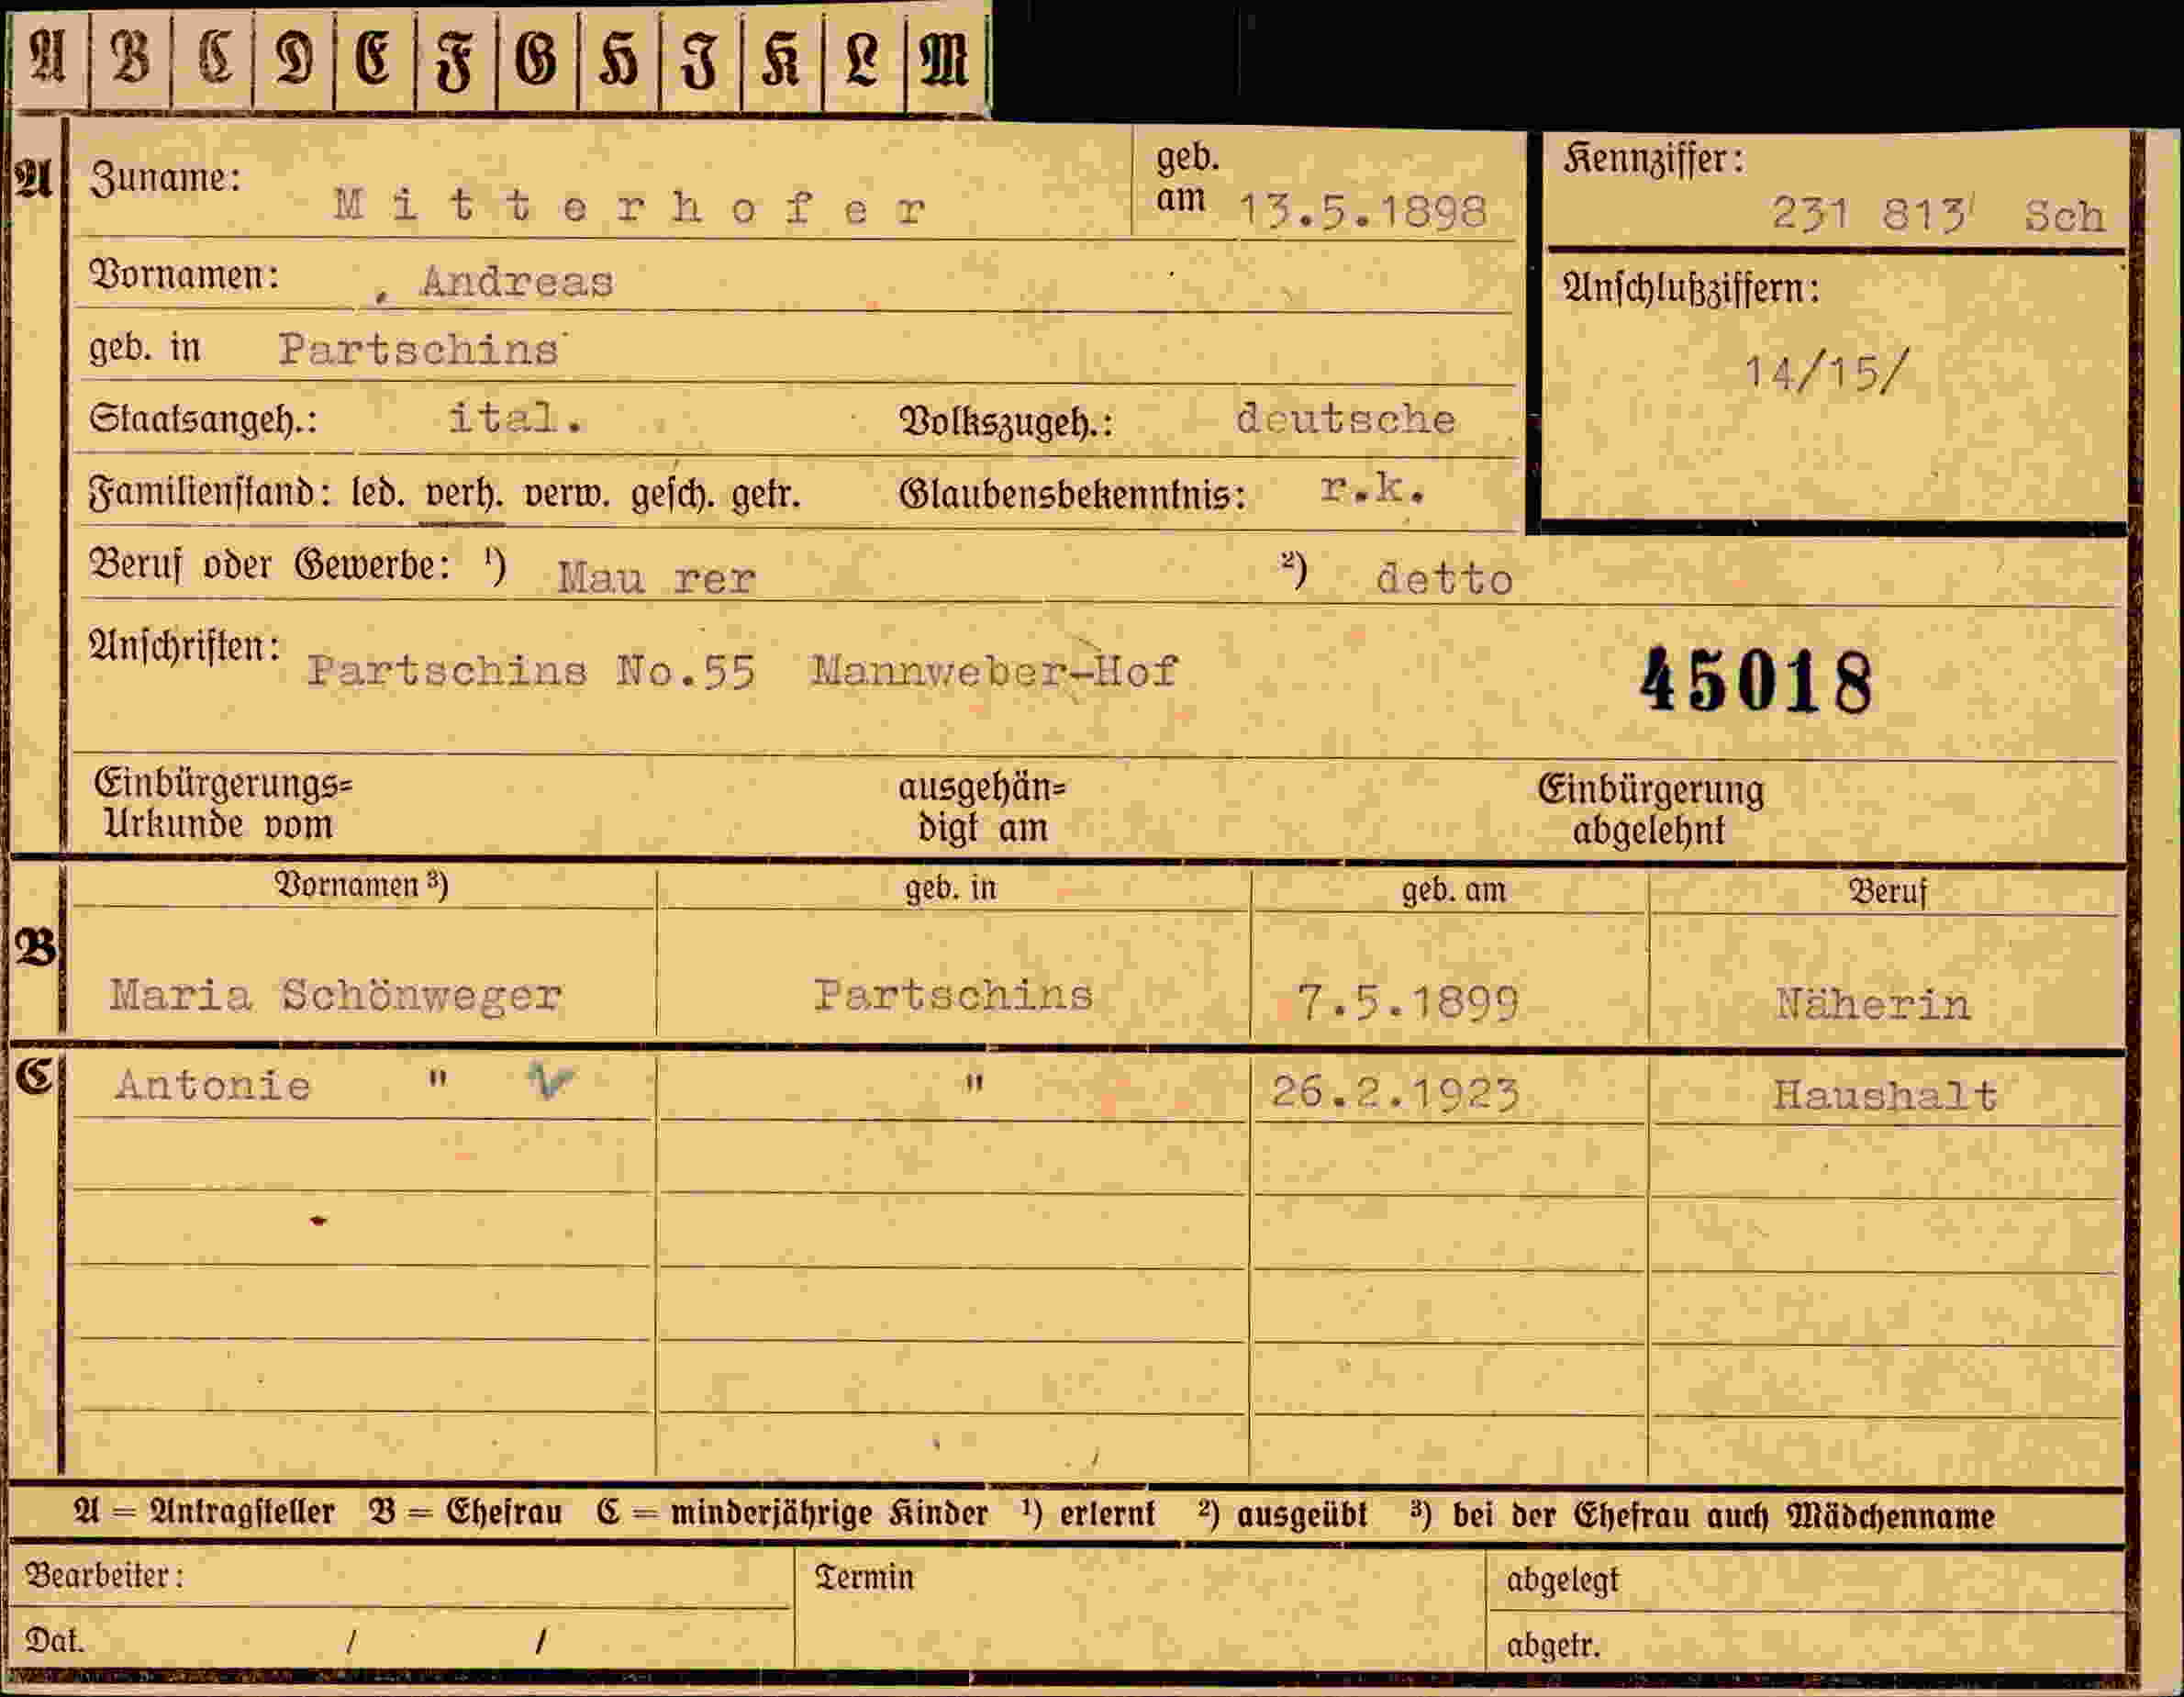 A B C D E F G H I K L M
A Zuname: Mitterhofer geb. am 13.5.1898 Kennziffer: 231 813 Sch
Vornamen: Andreas Anschlußziffern:
geb. in Partschins 14/15/
Staatsangeh.: ital. Volkszugeh.: deutsche
Familienstand: led. verh. verw. gesch. getr. Glaubensbekenntnis: r.k.
Beruf oder Gewerbe: ¹) Mau rer ²) detto
Anschriften: Partschins No.55 Mannweber-Hof 45018
Einbürgerungs= ausgehän= Einbürgerung
Urkunde vom digt am abgelehnt
Vornamen ³) geb. in geb. am Beruf
B
Maria Schönweger Partschins 7.5.1899 Näherin
C Antonie " " 26.2.1923 Haushalt
A = Antragsteller B = Ehefrau C = minderjährige Kinder ¹) erlernt ²) ausgeübt ³) bei der Ehefrau auch Mädchenname
Bearbeiter: Termin abgelegt
Dat. / / abgetr.